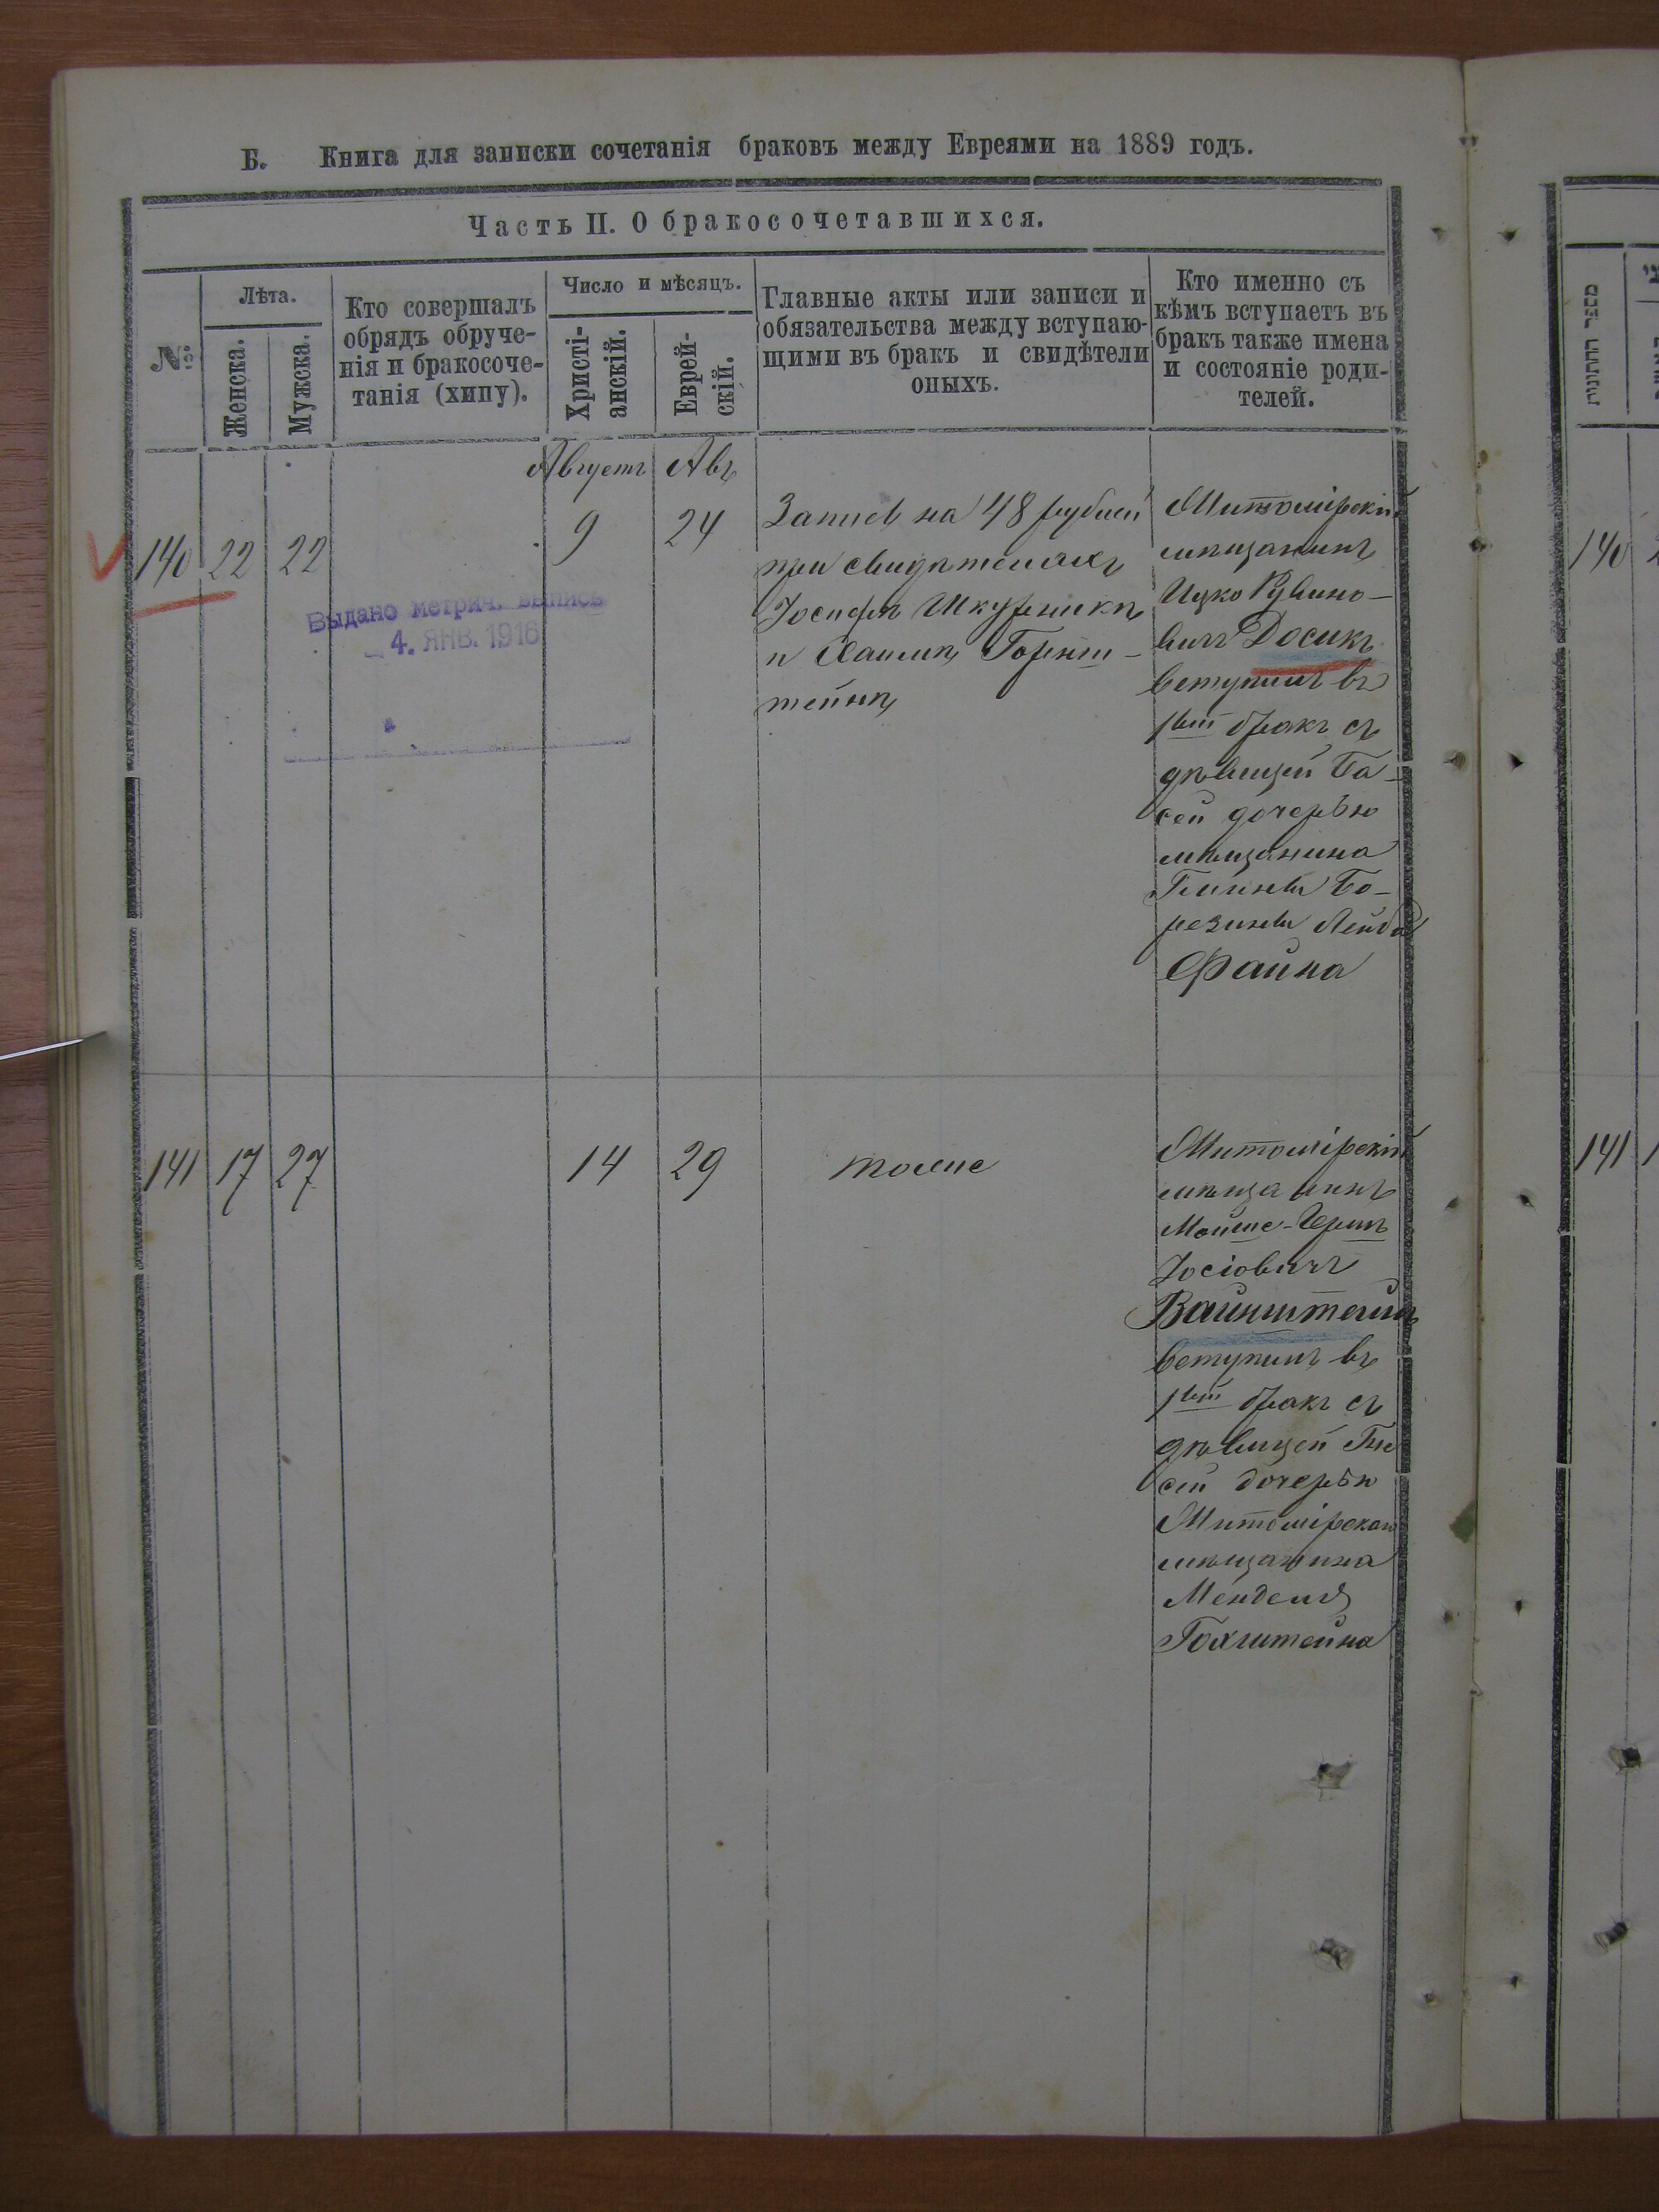 Б. Книга для записки сочетанія браковъ между Евреями на 1889 годъ.
Часть II. О бракосочетавшихся.
№
Лѣта.
Женска.
Мужска.
Кто совершалъ
обрядъ обруче-
нія и бракосоче-
танія (хипу).
Число и мѣсяцъ.
Христі-
анскій.
Еврей-
скій.
Главные акты или записи и
обязательства между вступаю-
щими въ бракъ и свидѣтели
оныхъ.
Кто именно съ
кѣмъ вступаетъ въ
бракъ также имена
и состояніе роди-
телей.
Августъ Авъ
140 22 22 9 24
Запись на 48 рублей
при свидѣтеляхъ
Іосифѣ Шкурникѣ
и Хаимѣ Горнш-
тейнѣ
Житомірскій
мѣщанинъ
Ицко Рувино-
вичъ Досикъ
вступилъ въ
1вый бракъ съ
дѣвицей Ба-
сей дочерью
мѣщанина
Лейба
Файна
Выдано метрич. выпись
4. ЯНВ. 1916
141 17 27 14 29
тоже
Житомірскій
мѣщанинъ
Мойше-Герш
Іосіовичъ
Вайнштейнъ
вступилъ въ
1вый бракъ съ
дѣвицей
сей дочерью
Житомірскаго
мѣщанина
Менделя
Гохштейна
מספר החתונות
140
141